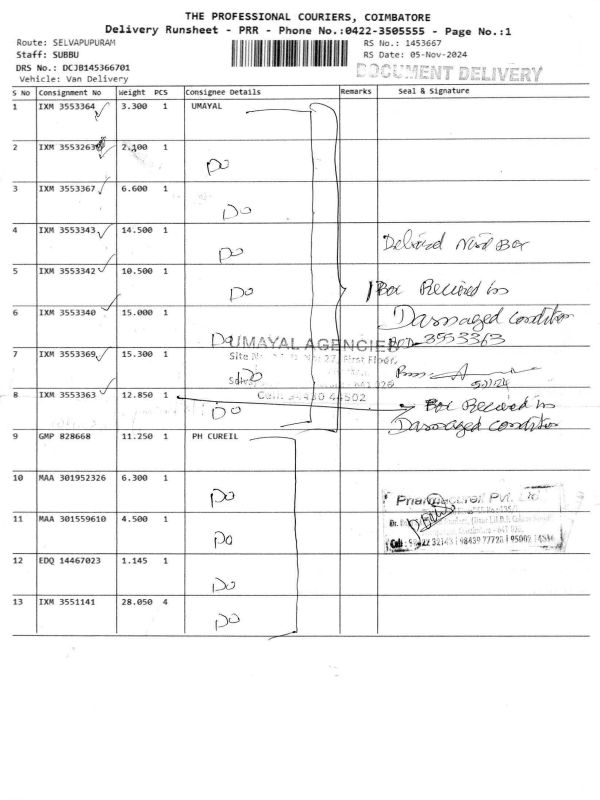 THE PROFESSIONAL COURIERS, COIMBATORE
Delivery Runsheet - PRR - Phone No.:0422-3505555 - Page No.:1
Route: SELVAPUPURAM
RS No.: 1453667
Staff: SUBBU
RS Date: 05-Nov-2024
DRS No.: DCJB145366701
DOCUMENT DELIVERY
Vehicle: Van Delivery
S No Consignment No Weight PCS Consignee Details Remarks Seal & Signature
1 IXM 3553364 3.300 1 UMAYAL
2 IXM 3553263 2.100 1 Do
3 IXM 3553367 6.600 1 Do
4 IXM 3553343 14.500 1 Do
Box
5 IXM 3553342 10.500 1 Do
1 Box Recieved in
Damaged condition
6 IXM 3553340 15.000 1 Do
UMAYAL AGENCIES
3553363
7 IXM 3553369 15.300 1 Do
First Floor,
8 IXM 3553363 12.850 1 Do
Box Recieved in
Damaged condition
9 GMP 828668 11.250 1 PH CUREIL
10 MAA 301952326 6.300 1 Do
Pvt. Ltd
11 MAA 301559610 4.500 1 Do
12 EDQ 14467023 1.145 1 Do
13 IXM 3551141 28.050 4 Do